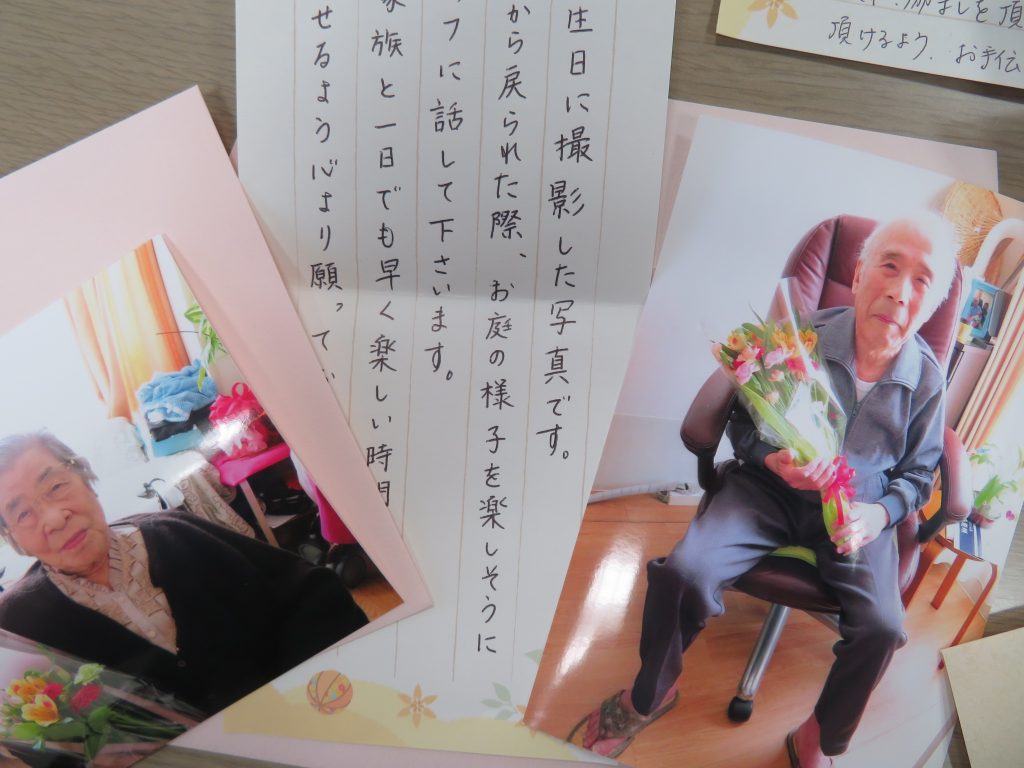 生日に撮影した写真です。
から戻られた際、お庭の様子を楽しそうに
フに話して下さいます。
族と一日でも早く楽しい時間
せるよう心より願って
励ましを頂
頂けるよう、お手伝